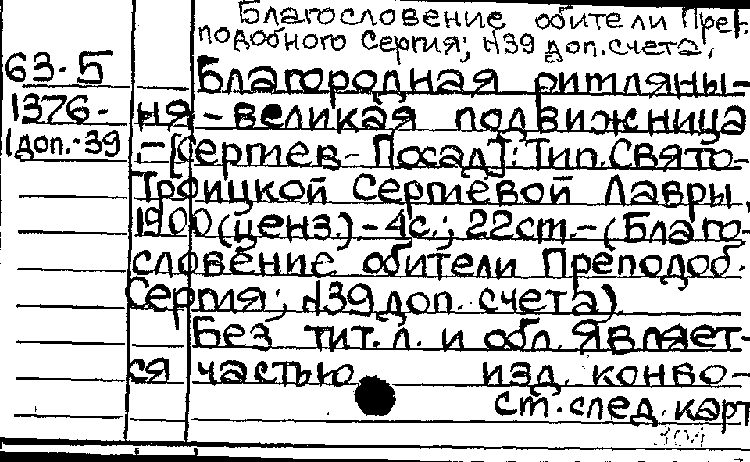 Благословение обители Преп.
подобного Сергия; №39 доп. счета,
63-5
Благородная римляны-
1376-
ня - великая подвижница
(доп.-39
.-[Сергиев-Посад]: Тип. Свято-
Троицкой Сергиевой Лавры,
1900 (ценз.) - 4с.; 22см. - (Благо-
словение обители Преподоб.
Сергия; №39 доп. счета).
Без тит. л. и обл. Являет-
ся частью изд. конво-
См. след. карт
304